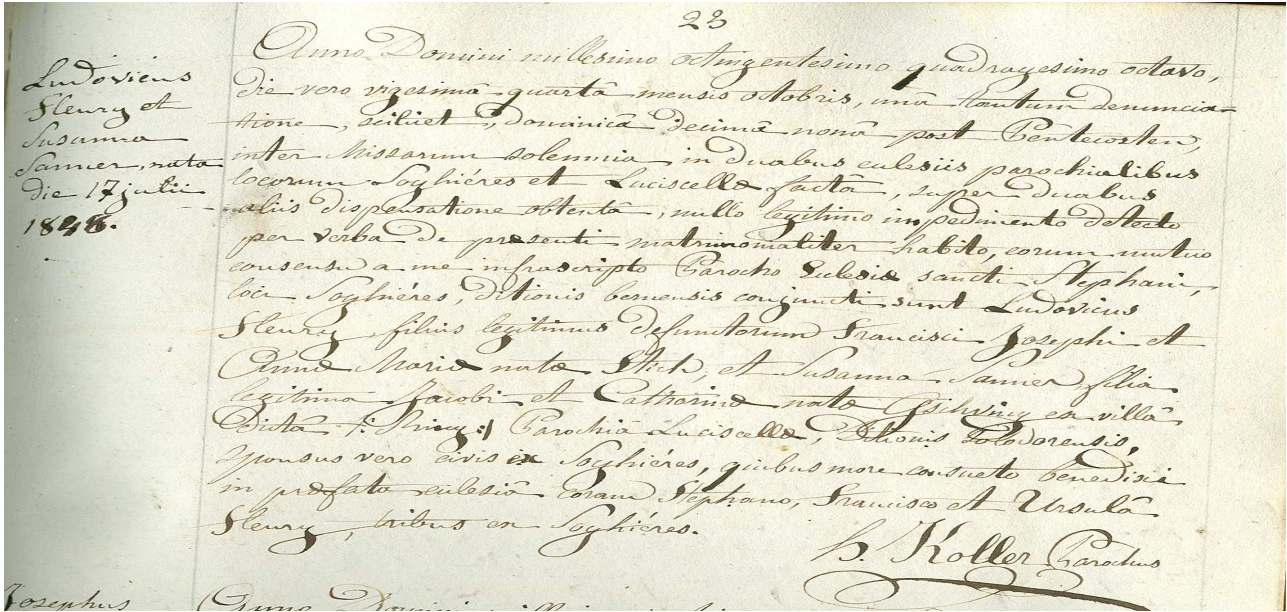 23
Ludovicus
Fleury et
Susanna
Sanner, nata
die 17 julii
1848.
Anno Domini millesimo octingentesimo quadragesimo octavo,
die vero vigesimâ quartâ mensis octobris, unâ tantum denuncia=
tione, scilicet, dominicâ decimâ nonâ post Pentecosten,
inter Missarum solemnia in duabus eclesiis parochialibus
locorum Soghiéres et Luciscellæ factâ, super duabus
aliis dispensatione obtentâ, nullo legitimo impedimento detecto
per verba de presenti matrimonialiter habito, eorum mutuo
consensu a me infrascripto Parocho Eclesiæ sancti Stephani,
loci Soghiéres, ditionis bernensis conjuncti sunt Ludovicus
Fleury, filius legitimus defunctorum Francisci Josephi et
Annæ Mariæ natæ Stich, et Susanna Sanner, filia
legitima Jacobi et Catharinæ natæ Gschwing ex villâ
Dictâ /: Ring :/ Parochiâ Luciscellæ, Ditionis Solodorensis,
sponsus vero civis ex Soghiéres, quibus more consueto benedixi
in præfatâ eclesiâ coram Stephano, Francisco et Ursulâ
Fleury, tribus ex Soghiéres.
h. Koller Parochus
Josephus
Anno Domini